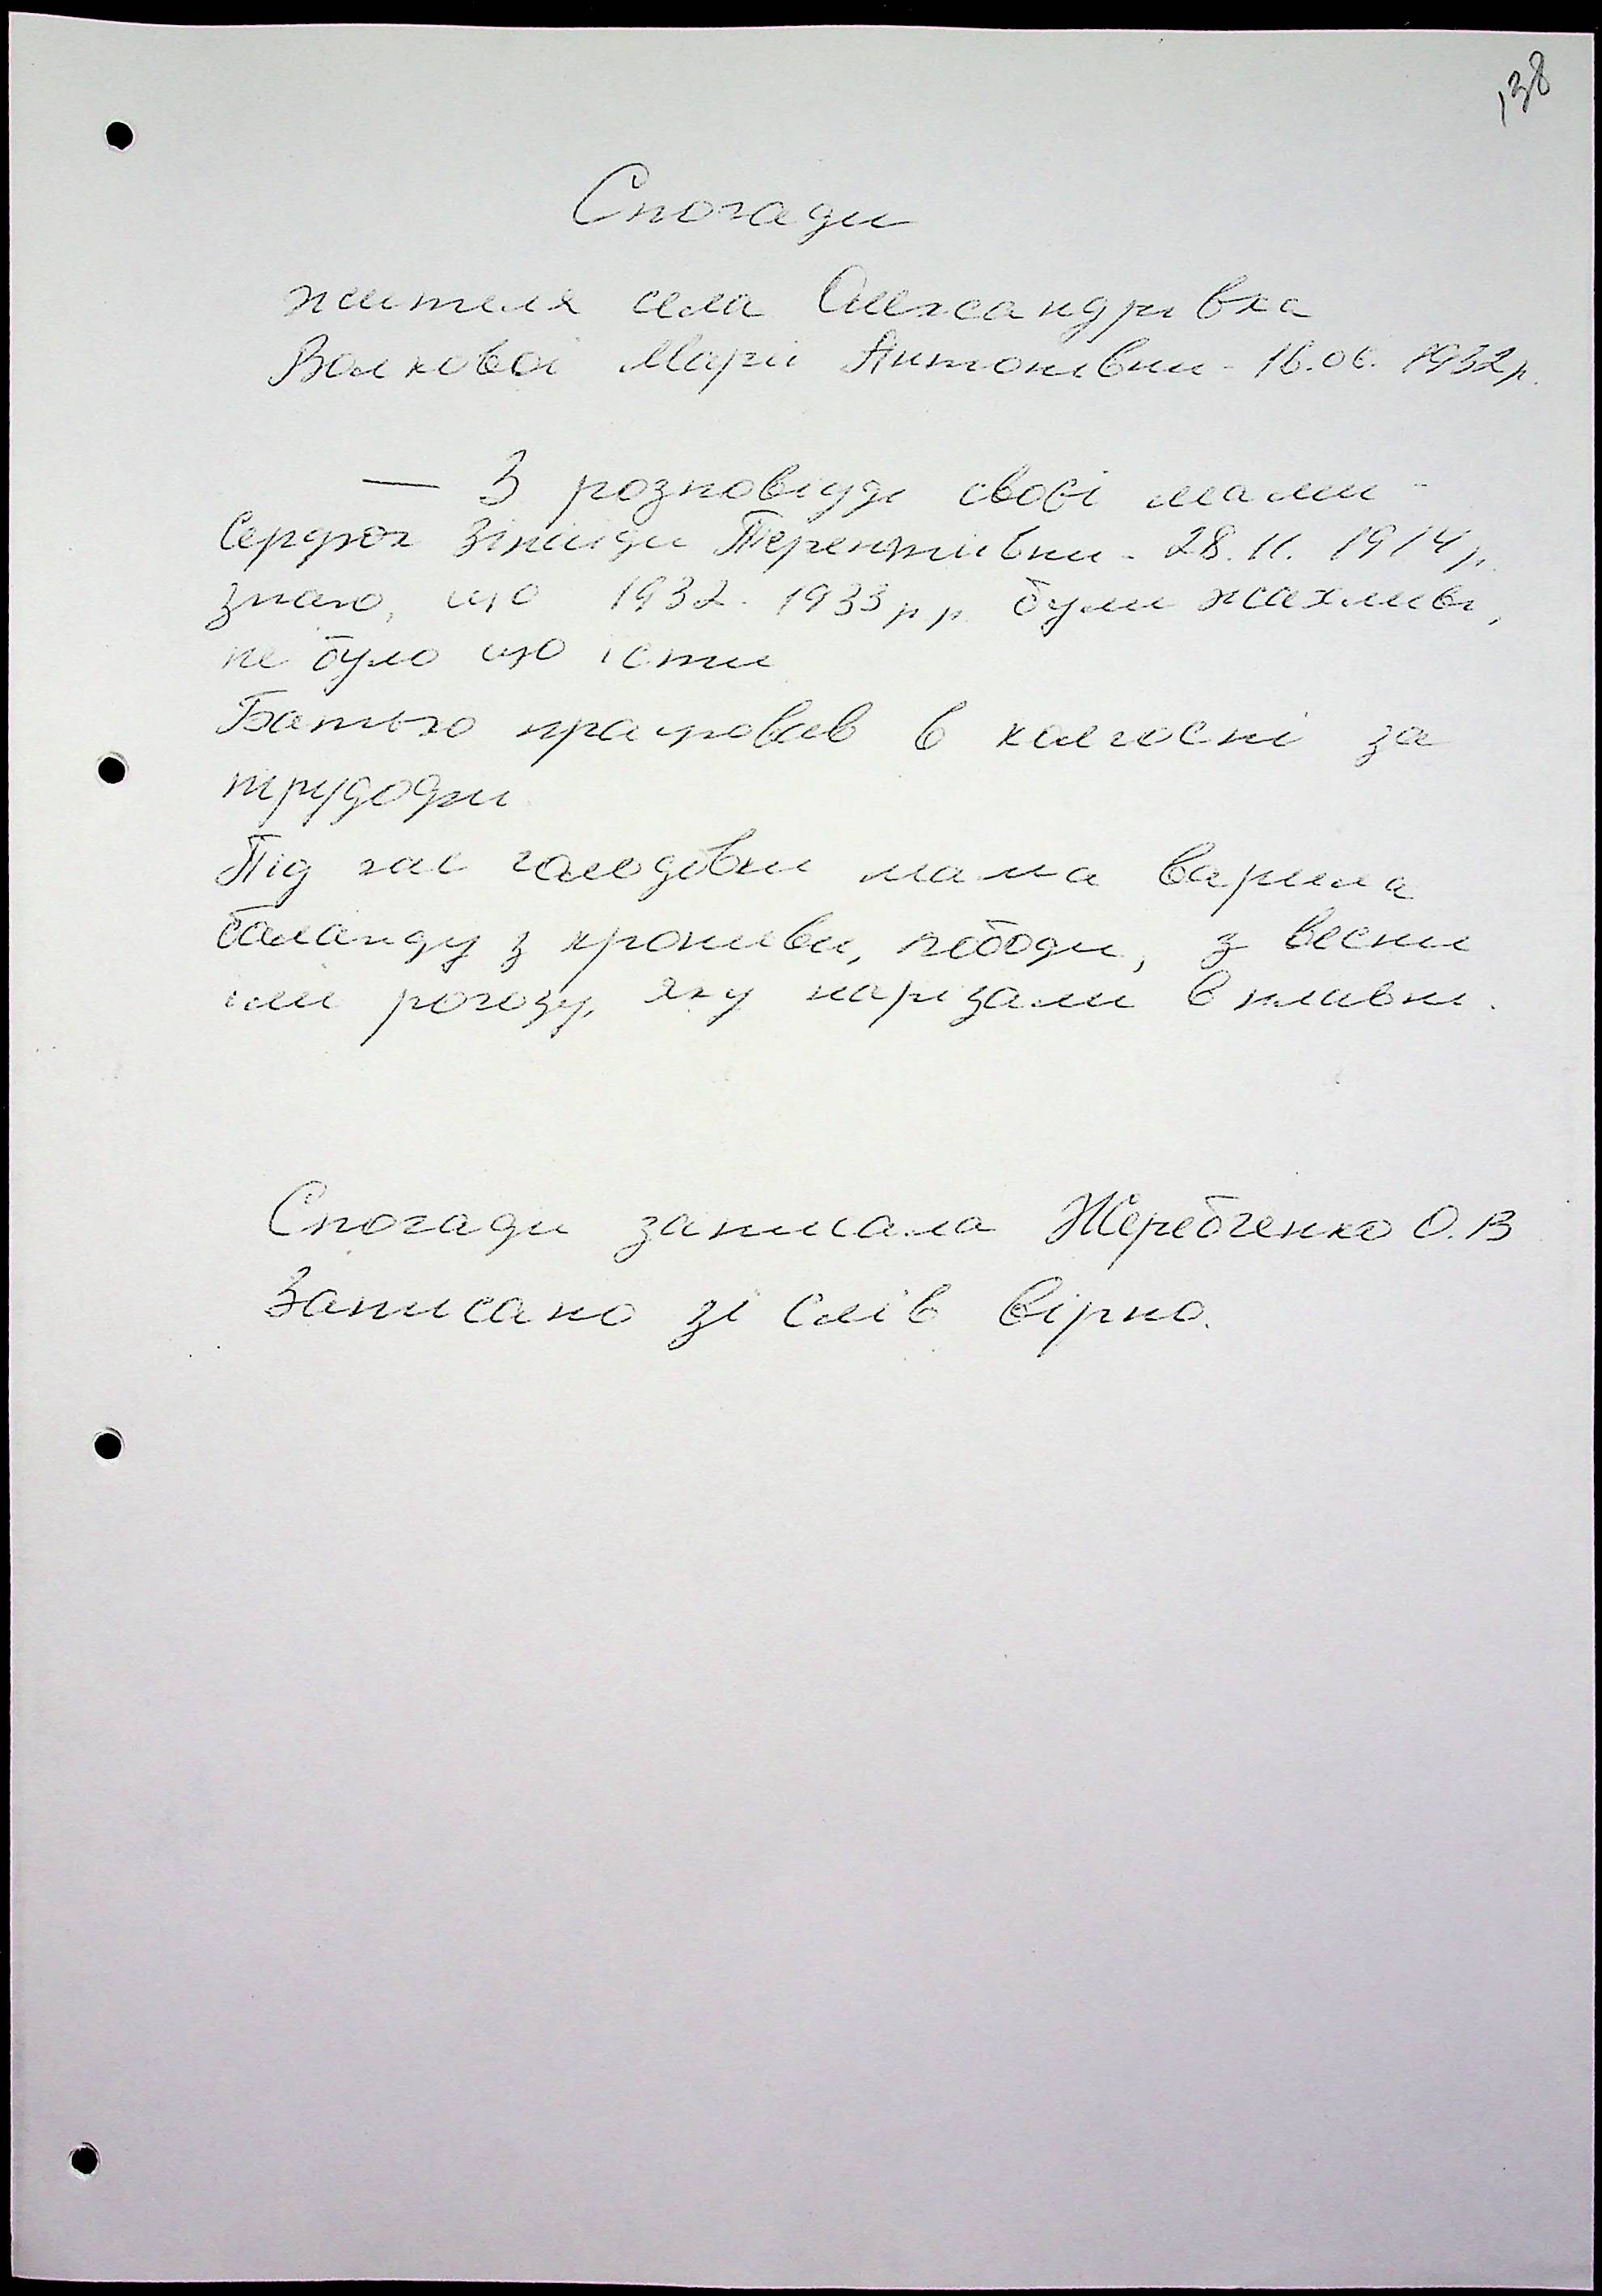 138
Спогади
жителя села Олександрівка
Волкової Марії Антонівни - 16.06. 1932р.
— З розповіді своєї мами -
Сердюк Зінаїди Терентіївни - 28.11. 1914р.
знаю, що 1932-1933рр. були жахливі,
не було що їсти
Батько працював в колгоспі за
трудодні
Під час голодовки мама варила
баланду з кропиви, лободи, з весни
їли рогозу, яку нарізали в плавні.
Спогади записала Жеребченко О.В
Записано зі слів вірно.